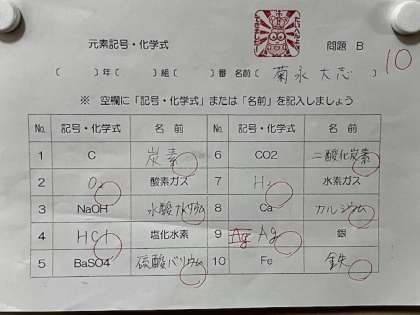 元素記号・化学式 問題 B 10
( )年( )組( )番 名前( 菊永大志 )
※ 空欄に「記号・化学式」または「名前」を記入しましょう
No. 記号・化学式 名前 No. 記号・化学式 名前
1 C 炭素 6 CO2 二酸化炭素
2 O2 酸素ガス 7 H2 水素ガス
3 NaOH 水酸ナトリウム 8 Ca カルシウム
4 HCl 塩化水素 9 Ag Ag 銀
5 BaSO4 硫酸バリウム 10 Fe 鉄